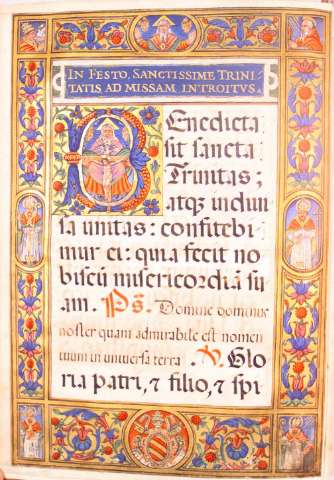 IN FESTO, SANCTISSIME TRINI
TATIS AD MISSAM INTROITVS.
Benedicta
sit sancta
Trinitas;
atq; indiui
sa unitas: confitebi
mur ei: quia fecit no
biscū misericordiā su
am. Ps. Domine dominus
noster quam admirabile est nomen
tuum in universa terra. V. Glo
ria patri, ⁊ filio, ⁊ spi